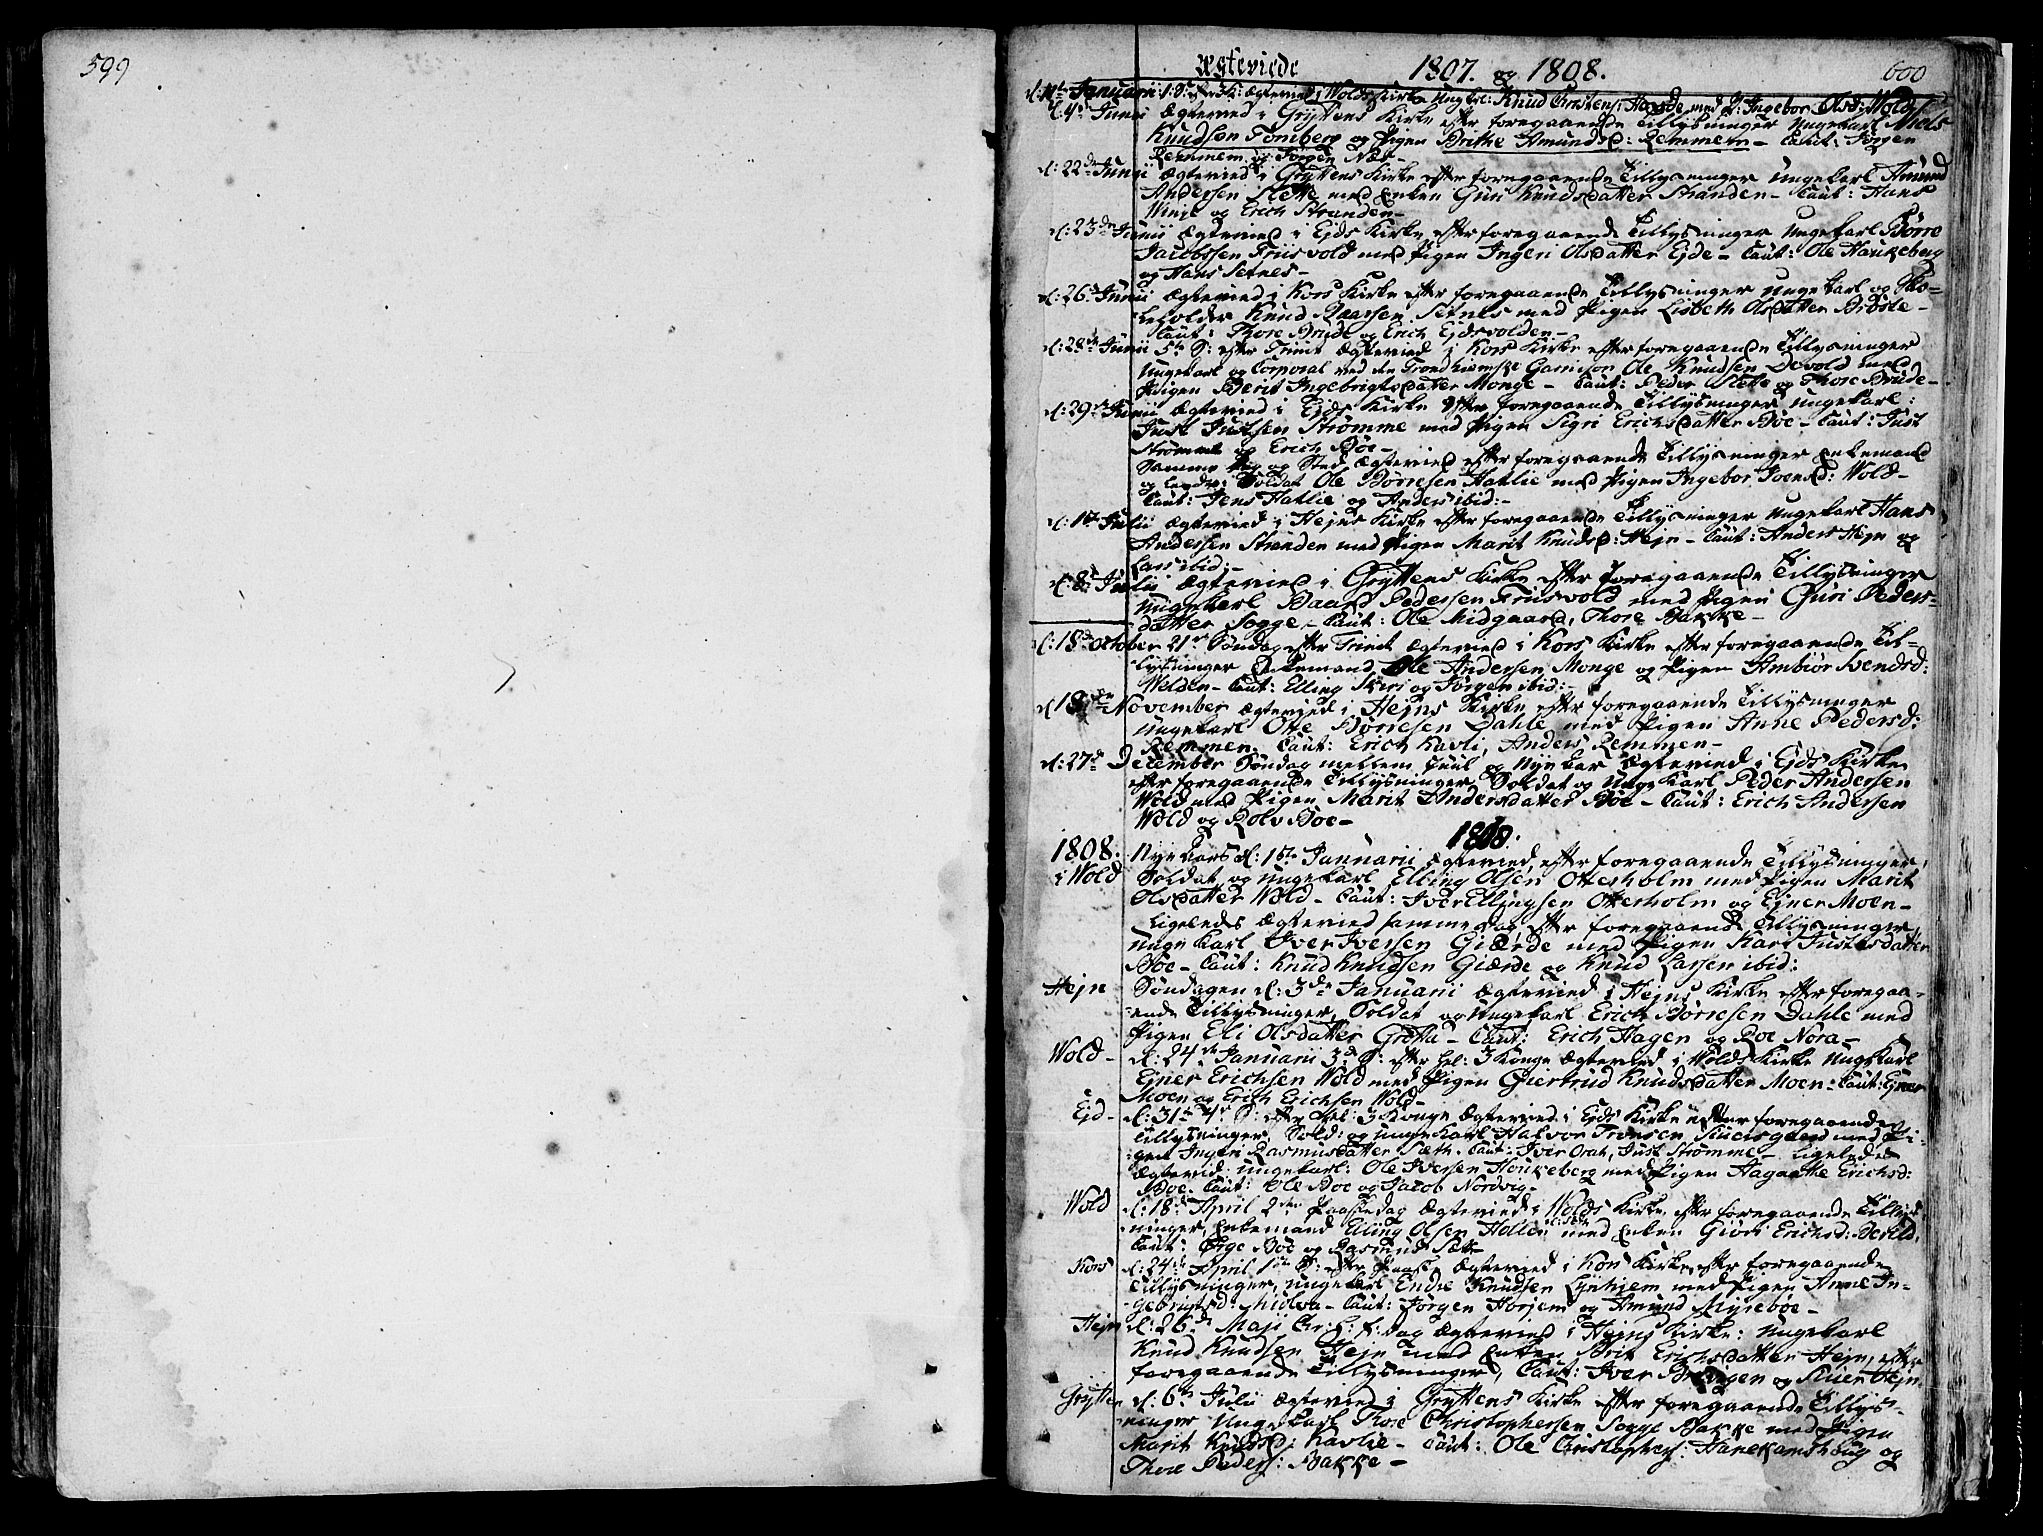 599
Ægteviede 1807. og 1808. 600
Januarii ægtevied i Wolds Kirke Knud Christens: med P: Ingebor Olsd: Wold
d: 4de Junii Ægtevied i Gryttens Kirke efter foregaaende Tillysninger Ungekarl Niels
Knudsøn Tomberg og Pigen Brithe Amundsd: Remmem - Caut: Jørgen
Remmem og Jørgen Næs -
d: 22de Junii Ægtevied i Gryttens Kirke efter foregaaende Tillysninger Ungekarl Amund
Andersen Slette med Enken Guri Knudsdatter Stranden - Caut: Hans
Winje og Erich Stranden -
d: 23de Junii Ægtevied i Ejds Kirke efter foregaaende Tillysninger Ungekarl Børre
Jacobssen Friisvold med Pigen Ingeri Olsdatter Ejde - Caut: Ole Haukeberg
og Hans Setnes -
d: 26de Junii Ægtevied i Kors Kirke efter foregaaende Tillysninger Ungekarl og Sko-
leholder Knud Setnes med Pigen Lisbeth Olsdatter Brøste -
Caut: Thore Brude og Erich Ejdsvolden -
d: 28de Junii 5te S: efter Trinit Ægtevied i Kors Kirke efter foregaaende Tillysninger
Ungekarl og Corporal ved den Trondhiemske Garnison Ole Knudsen Devold med
Pigen Berit Ingebrigtsdatter Monge - Caut: Peder Slette og Thore Brude -
d: 29de Junii Ægtevied i Ejds Kirke efter foregaaende Tillysninger Ungekarl:
Just Justsen Strømme med Pigen Sigri Erichsdatter Bøe - Caut: Just
Strømme og Erich Bøe -
Samme Dag og Sted Ægtevied efter foregaaende Tillysninger Enkemand
og Soldat Ole Børresen Hatlie med Pigen Ingebor Joensd: Wold -
Caut: Jens Hatlie og Anders ibid: -
d: 1te Julii Ægtevied i Hejns Kirke efter foregaaende Tillysninger Ungekarl Hans
Andersen Stranden med Pigen Marit Knudsd: Hejn - Caut: Anders Hejn og
Lars ibid: -
d: 8de Julii Ægtevied i Gryttens Kirke efter foregaaende Tillysninger
Ungekarl Baard Pedersen Friisvold med Pigen Guri Peders-
datter Sogge, - Caut: Ole Midgaard, Thore Bakke -
d: 18de October 21de Søndag efter Trinit Ægtevied i Kors Kirke efter foregaaende Til-
lysninger Enkemand Ole Andersen Monge og Pigen Ambiør Svendsd:
Welden - Caut: Elling Skiri og Jørgen ibid: -
d 18de November Ægtevied i Hejns Kirke efter foregaaende Tillysninger
Ungekarl Otte Børresen Dahle med Pigen Anne Pedersd:
Remmen. Caut: Erich Kavli, Anders Remmen -
d: 27de December Søndag mellem Juul og Nyeaar Ægtevied i Ejds Kirke
efter foregaaende Tillysninger, Soldat og Unge Karl Peder Andersen
Wold med Pigen Marit Andersdatter Bøe - Caut: Erich Andersen
Wold og Rolv Bøe -
1808.
1808. Nye Aars d: 1te Januarii Ægtevied, efter foregaaende Tillysninger,
i Wold Soldat og Ungekarl Elling Olsen Otterholm med Pigen Marit
Olsdatter Wold - Caut: Iver Ellingsen Otterholm og Ejner Moen -
Ligeledes Ægtevied samme dag efter foregaaende Tillysninger,
unge Karl Iver Iversen Giærde med Pigen Kari Justesdatter
Bøe - Caut: Knud Knudsen Giærde og Knud Larsen ibid:
Hejn Søndagen d: 3de Januarii Ægtevied i Hejns Kirke efter foregaa-
ende Tillysninger, Soldat og Ungekarl Erich Børresen Dahle med
Pigen Eli Olsdatter Grøtta - Caut: Erich Hagen og Boe Nora -
Wold - d: 24de Januarii 3de S: efter hel: 3 Konge Ægtevied i Wolds Kirke Ungekarl
Ejner Erichsen Wold med Pigen Giertrud Knudsdatter Moen - Caut: Ejner
Moen og Erich Erichsen Wold -
Ejd - d: 31te 4de S: efter hel: 3 Konge Ægtevied i Ejds Kirke efter foregaaende
Tillysninger Sold: og unge Karl Halvor Tronsen med Pi-
gen Ingeri Rasmusdatter Sæth - Caut: Iver Orah, Just Strømme - Ligeledes
Ægtevied: Ungekarl: Ole Iversen Houkeberg med Pigen Hagathe Erichsd:
Bøe. Caut: Ole Boe og Jacob Nordvig -
Wold d: 18de April 2den Paaskedag Ægtevied i Wolds Kirke, efter foregaaende Tillys-
ninger, Enkemand Elling Olsen Holle: med Enken Giøri Erichsd: Berild,
Caut: Ørge Bøe og Rasmus Sæth
Kors d: 24de April 1te S: efter Paaske Ægtevied i Kors Kirke, efter foregaaende
Tillysninger, ungekarl Endre Knudsen Lynhjem med Pigen Anne In-
gebrigtsd: Midlva - Caut: Jørgen Horjem og Amund Myrebøe -
Hejn d: 26de Maji Chr: H: f: dag Ægtevied i Hejns Kirke: Ungekarl
Knud Knudsen Hejn med Enken Brit Erichsdatter Hejn, efter
foregaaende Tillysninger, Caut: Iver og Siver Hejn.
Grytten d: 6te Julii Ægtevied i Gryttens Kirke efter foregaaende Tillys-
ninger Ungekarl Thore Christophersen Sogge Bakke med Pigen
Marit Knudsd: Kavlie - Caut: Ole Christophers: Hanekamshoug og
Thore Peders: Bakke -